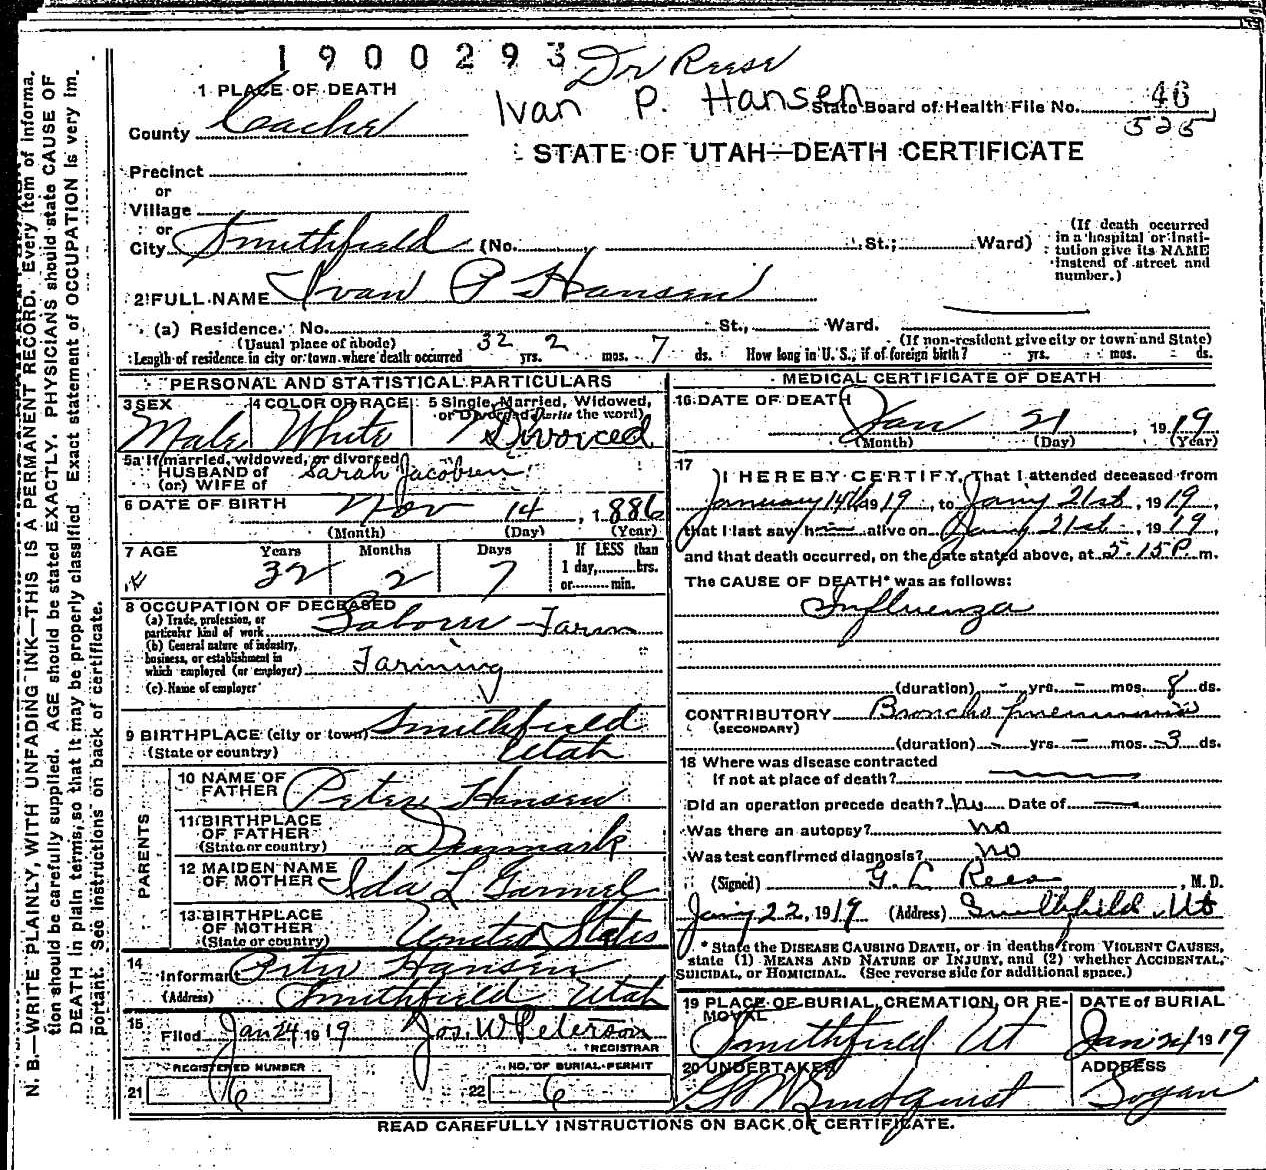 1900293
Dr Reese
Ivan P. Hansen
State Board of Health File No. 46
525
1 PLACE OF DEATH
County Cache
STATE OF UTAH—DEATH CERTIFICATE
Precinct
or
Village
or
City Smithfield (No. St.; Ward)
(If death occurred in a hospital or institution give its NAME instead of street and number.)
2 FULL NAME Ivan P Hansen
(a) Residence. No. St., Ward.
(Usual place of abode) (If non-resident give city or town and State)
Length of residence in city or town where death occurred 32 yrs. 2 mos. 7 ds. How long in U. S., if of foreign birth? yrs. mos. ds.
PERSONAL AND STATISTICAL PARTICULARS
3 SEX Male
4 COLOR OR RACE White
5 Single, Married, Widowed, or Divorced (write the word) Divorced
5a If married, widowed, or divorced
HUSBAND of
(or) WIFE of Sarah Jacobsen
6 DATE OF BIRTH Nov 14, 1886
(Month) (Day) (Year)
7 AGE Years Months Days If LESS than
32 2 7 1 day, hrs.
or min.
8 OCCUPATION OF DECEASED
(a) Trade, profession, or particular kind of work Laborer - Farm
(b) General nature of industry, business, or establishment in which employed (or employer) Farming
(c) Name of employer
9 BIRTHPLACE (city or town) Smithfield
(State or country) Utah
PARENTS
10 NAME OF FATHER Peter Hansen
11 BIRTHPLACE OF FATHER (State or country) Denmark
12 MAIDEN NAME OF MOTHER Ida L
13 BIRTHPLACE OF MOTHER (State or country) United States
14 Informant Peter Hansen
(Address) Smithfield Utah
15 Filed Jan 24 1919 Jos. W Peterson
REGISTRAR
REGISTERED NUMBER
21 6
NO. OF BURIAL PERMIT
22 6
MEDICAL CERTIFICATE OF DEATH
16 DATE OF DEATH Jan 21, 1919
(Month) (Day) (Year)
17 I HEREBY CERTIFY, That I attended deceased from
January 14th 1919, to Jany 21st, 1919,
that I last saw h alive on Jany 21st, 1919,
and that death occurred, on the date stated above, at 5.15 P. m.
The CAUSE OF DEATH* was as follows:
Influenza
(duration) - yrs. - mos. 8 ds.
CONTRIBUTORY Broncho pneumonia
(SECONDARY)
(duration) - yrs. - mos. 3 ds.
18 Where was disease contracted
if not at place of death?
Did an operation precede death? no Date of
Was there an autopsy? no
Was test confirmed diagnosis? no
(Signed) G. L Rees, M. D.
Jany 22, 1919 (Address) Smithfield, Ut
* State the DISEASE CAUSING DEATH, or in deaths from VIOLENT CAUSES,
state (1) MEANS AND NATURE OF INJURY, and (2) whether ACCIDENTAL,
SUICIDAL, or HOMICIDAL. (See reverse side for additional space.)
19 PLACE OF BURIAL, CREMATION, OR REMOVAL Smithfield Ut
DATE of BURIAL Jan 24 1919
20 UNDERTAKER G W Lindquist
ADDRESS Logan
READ CAREFULLY INSTRUCTIONS ON BACK OF CERTIFICATE.
N. B.—WRITE PLAINLY, WITH UNFADING INK—THIS IS A PERMANENT RECORD. Every item of informa-
tion should be carefully supplied. AGE should be stated EXACTLY. PHYSICIANS should state CAUSE OF
DEATH in plain terms, so that it may be properly classified. Exact statement of OCCUPATION is very im-
portant. See instructions on back of certificate.